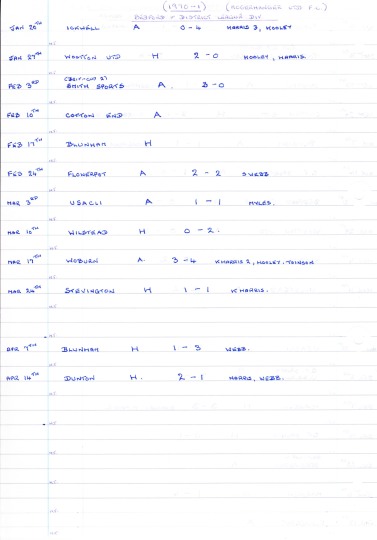 (1970-1) (ALDERMANNER UTD F.C.)
BEDFORD & DISTRICT LEAGUE DIV
JAN 20TH ICKWELL A 0-4 HARRIS 3, HOOLEY
JAN 27TH WOOTTON UTD H 2-0 HOOLEY, HARRIS.
FEB 3RD SMITH SPORTS A. 3-0
FEB 10TH COTTON END A
FEB 17TH BLUNHAM H
FEB 24TH FLOWERPOT A 2-2 WEBB
MAR 3RD USACLI A 1-1 MYLES.
MAR 10TH WILSTEAD H 0-2.
MAR 17TH WOBURN A. 3-4 K HARRIS 2, HOOLEY.
MAR 24TH STEVINGTON H 1-1 K HARRIS.
APR 7TH BLUNHAM H 1-3 WEBB.
APR 14TH DUNTON H. 2-1 HARRIS, WEBB.